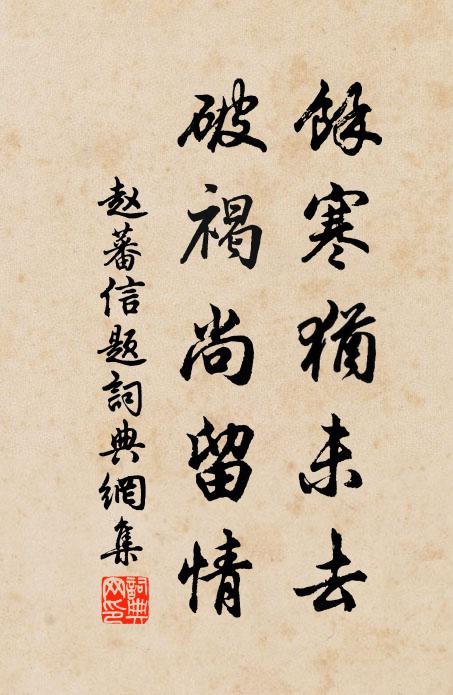 餘寒猶未去
破褐尚留情
赵蕃信题詞典網集
詞典网印